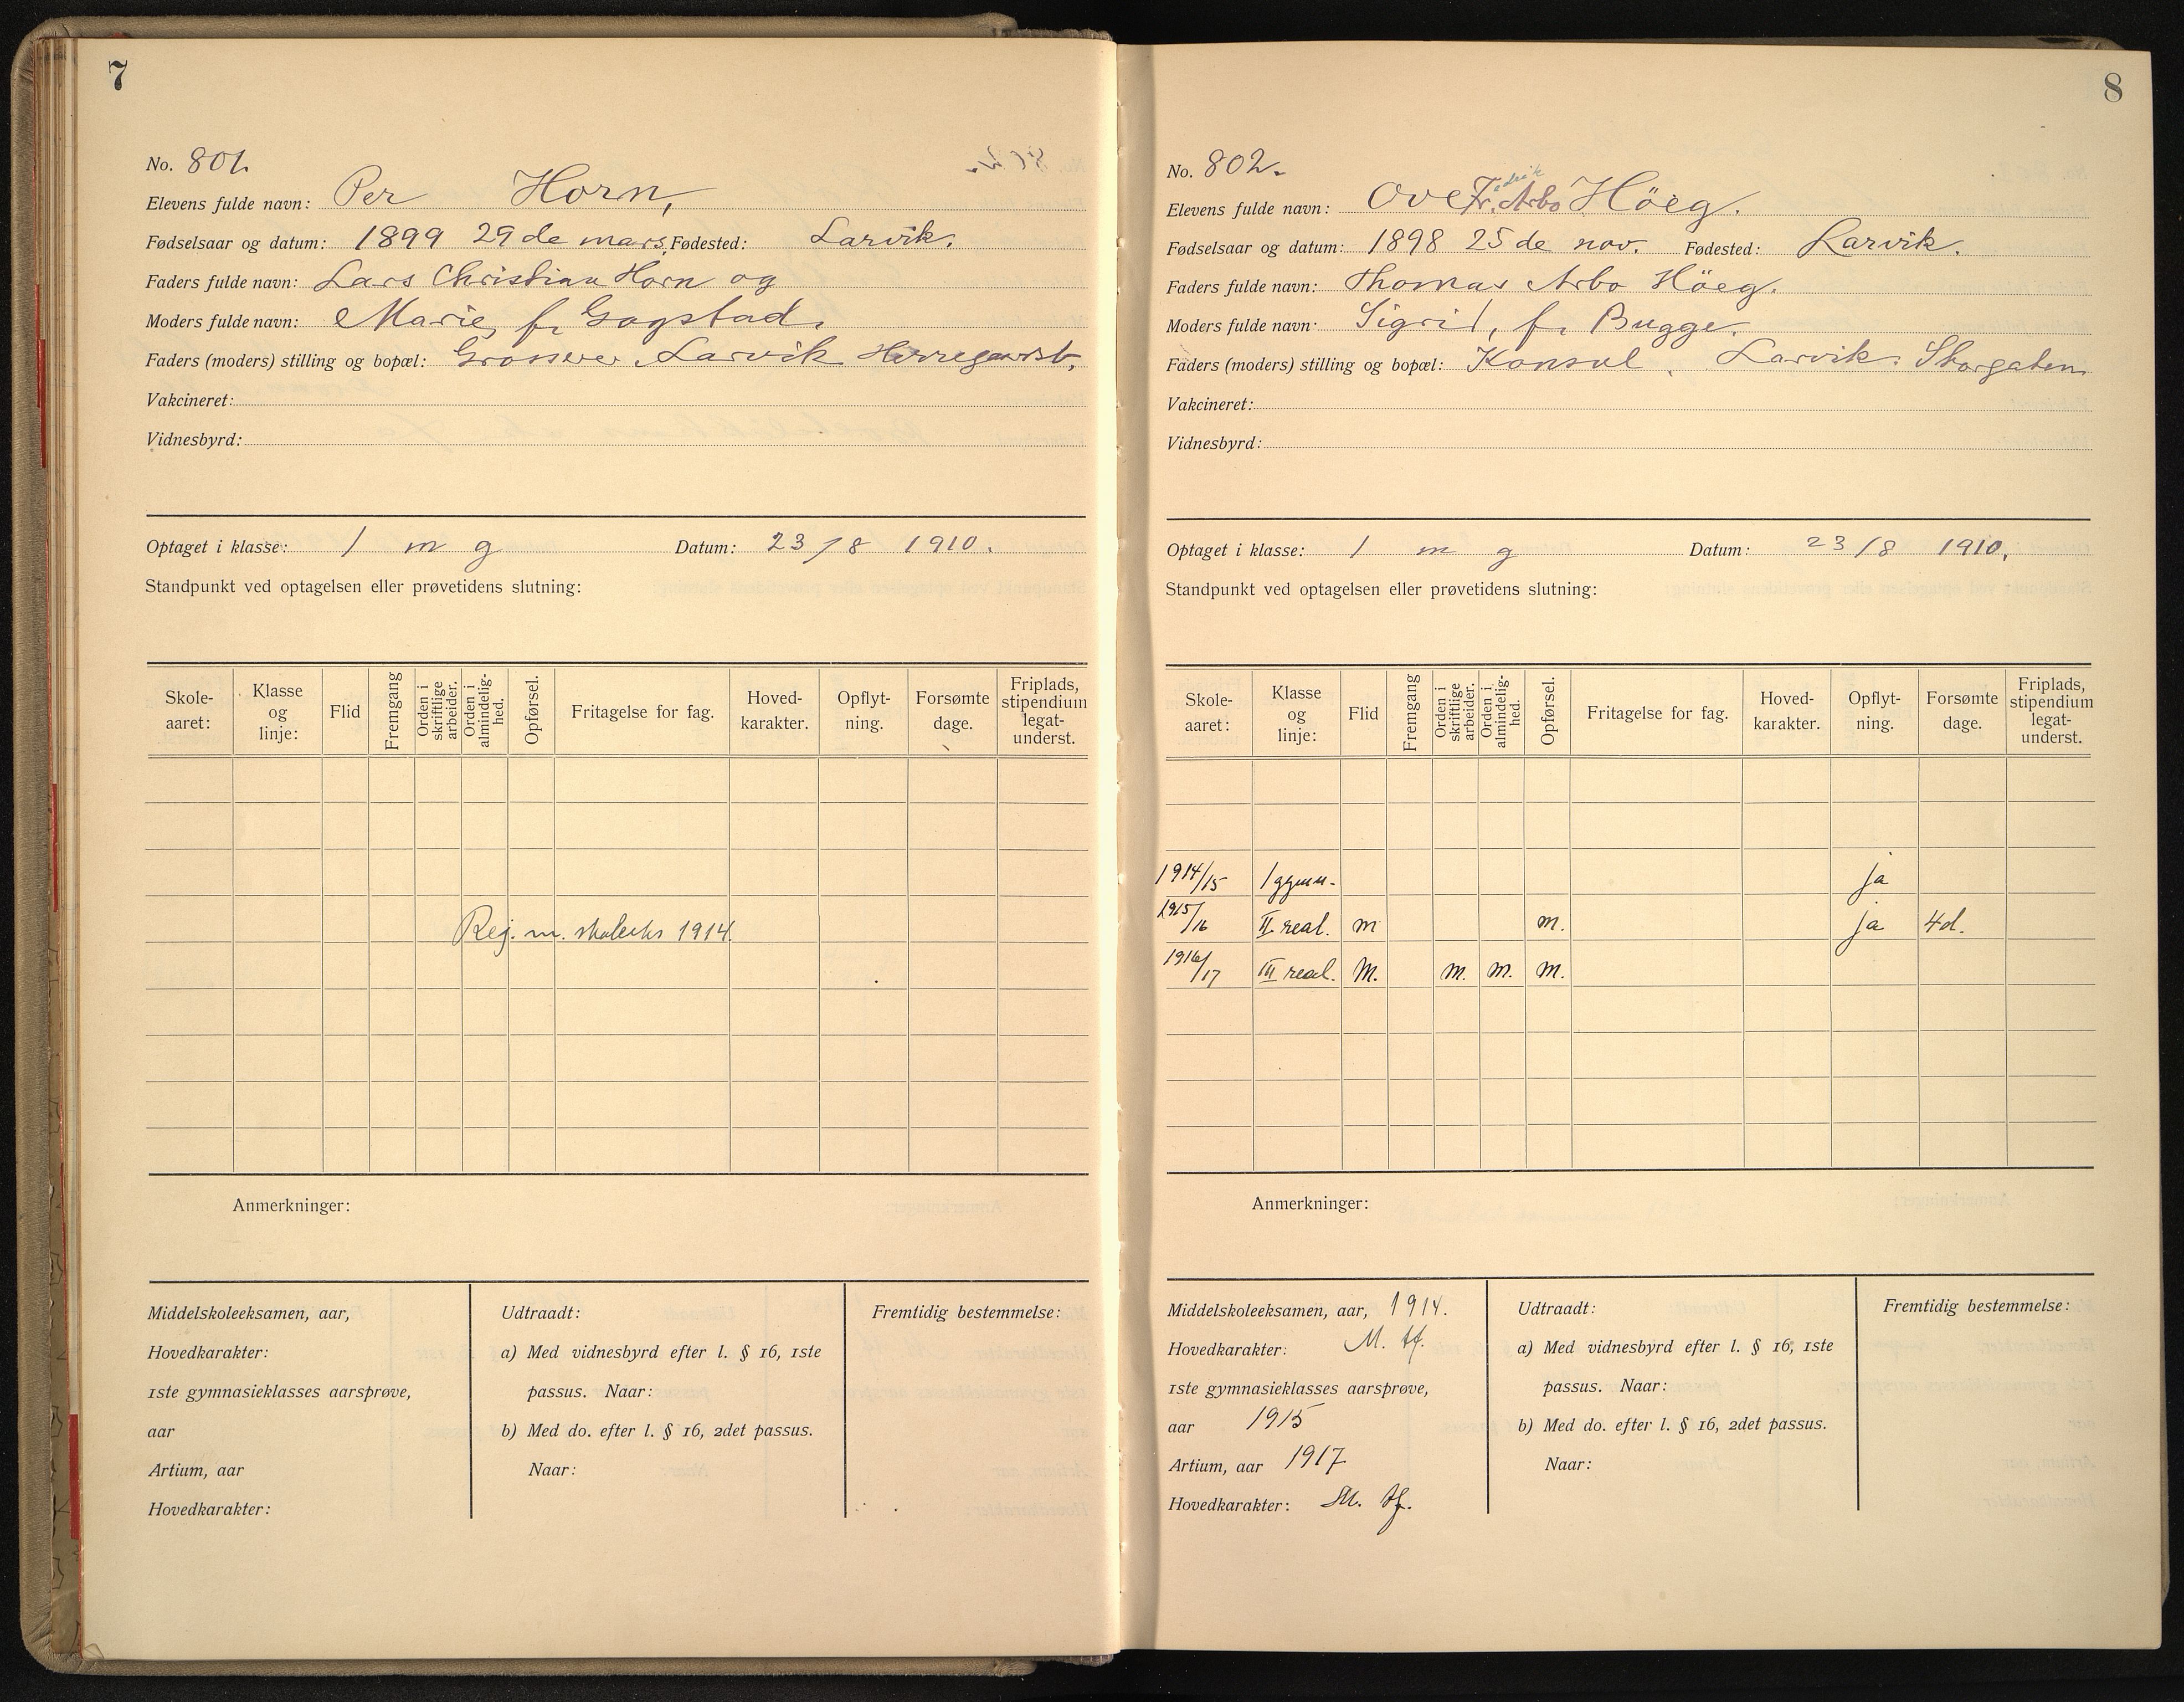 7
No. 801.
Elevens fulde navn: Per Horn,
Fødselsaar og datum: 1899 29de mars. Fødested: Larvik.
Faders fulde navn: Lars Christian Horn og
Moders fulde navn: Marie, f. Gogstad.
Faders (moders) stilling og bopæl: Grosserer Larvik
Vakcineret:
Vidnesbyrd:
Optaget i klasse: 1 m g Datum: 23/8 1910.
Standpunkt ved optagelsen eller prøvetidens slutning:
Skole-aaret: Klasse og linje: Flid Fremgang Orden i skriftlige arbeider. Orden i almindelig-hed. Opførsel. Fritagelse for fag. Hoved-karakter. Opflyt-ning. Forsømte dage. Friplads, stipendium legat-underst.
Rej. m. skoleeks 1914.
Anmerkninger:
Middelskoleeksamen, aar,
Hovedkarakter:
1ste gymnasieklasses aarsprøve,
aar
Artium, aar
Hovedkarakter:
Udtraadt:
a) Med vidnesbyrd efter l. § 16, 1ste
passus. Naar:
b) Med do. efter l. § 16, 2det passus.
Naar:
Fremtidig bestemmelse:
8
No. 802.
Elevens fulde navn: Ove Fr. Arbo Höeg.
Fødselsaar og datum: 1898 25de nov. Fødested: Larvik.
Faders fulde navn: Thomas Arbo Höeg.
Moders fulde navn: Sigrid, f. Bugge.
Faders (moders) stilling og bopæl: Konsul. Larvik. Storgaten
Vakcineret:
Vidnesbyrd:
Optaget i klasse: 1 m g Datum: 23/8 1910.
Standpunkt ved optagelsen eller prøvetidens slutning:
Skole-aaret: Klasse og linje: Flid Fremgang Orden i skriftlige arbeider. Orden i almindelig-hed. Opførsel. Fritagelse for fag. Hoved-karakter. Opflyt-ning. Forsømte dage. Friplads, stipendium legat-underst.
1914/15 I gymn. ja
1915/16 II real. m m. ja 4d.
1916/17 III real. M. m. m. m.
Anmerkninger:
Middelskoleeksamen, aar, 1914.
Hovedkarakter: M. tf.
1ste gymnasieklasses aarsprøve,
aar 1915
Artium, aar 1917
Hovedkarakter: M. tf.
Udtraadt:
a) Med vidnesbyrd efter l. § 16, 1ste
passus. Naar:
b) Med do. efter l. § 16, 2det passus.
Naar:
Fremtidig bestemmelse: